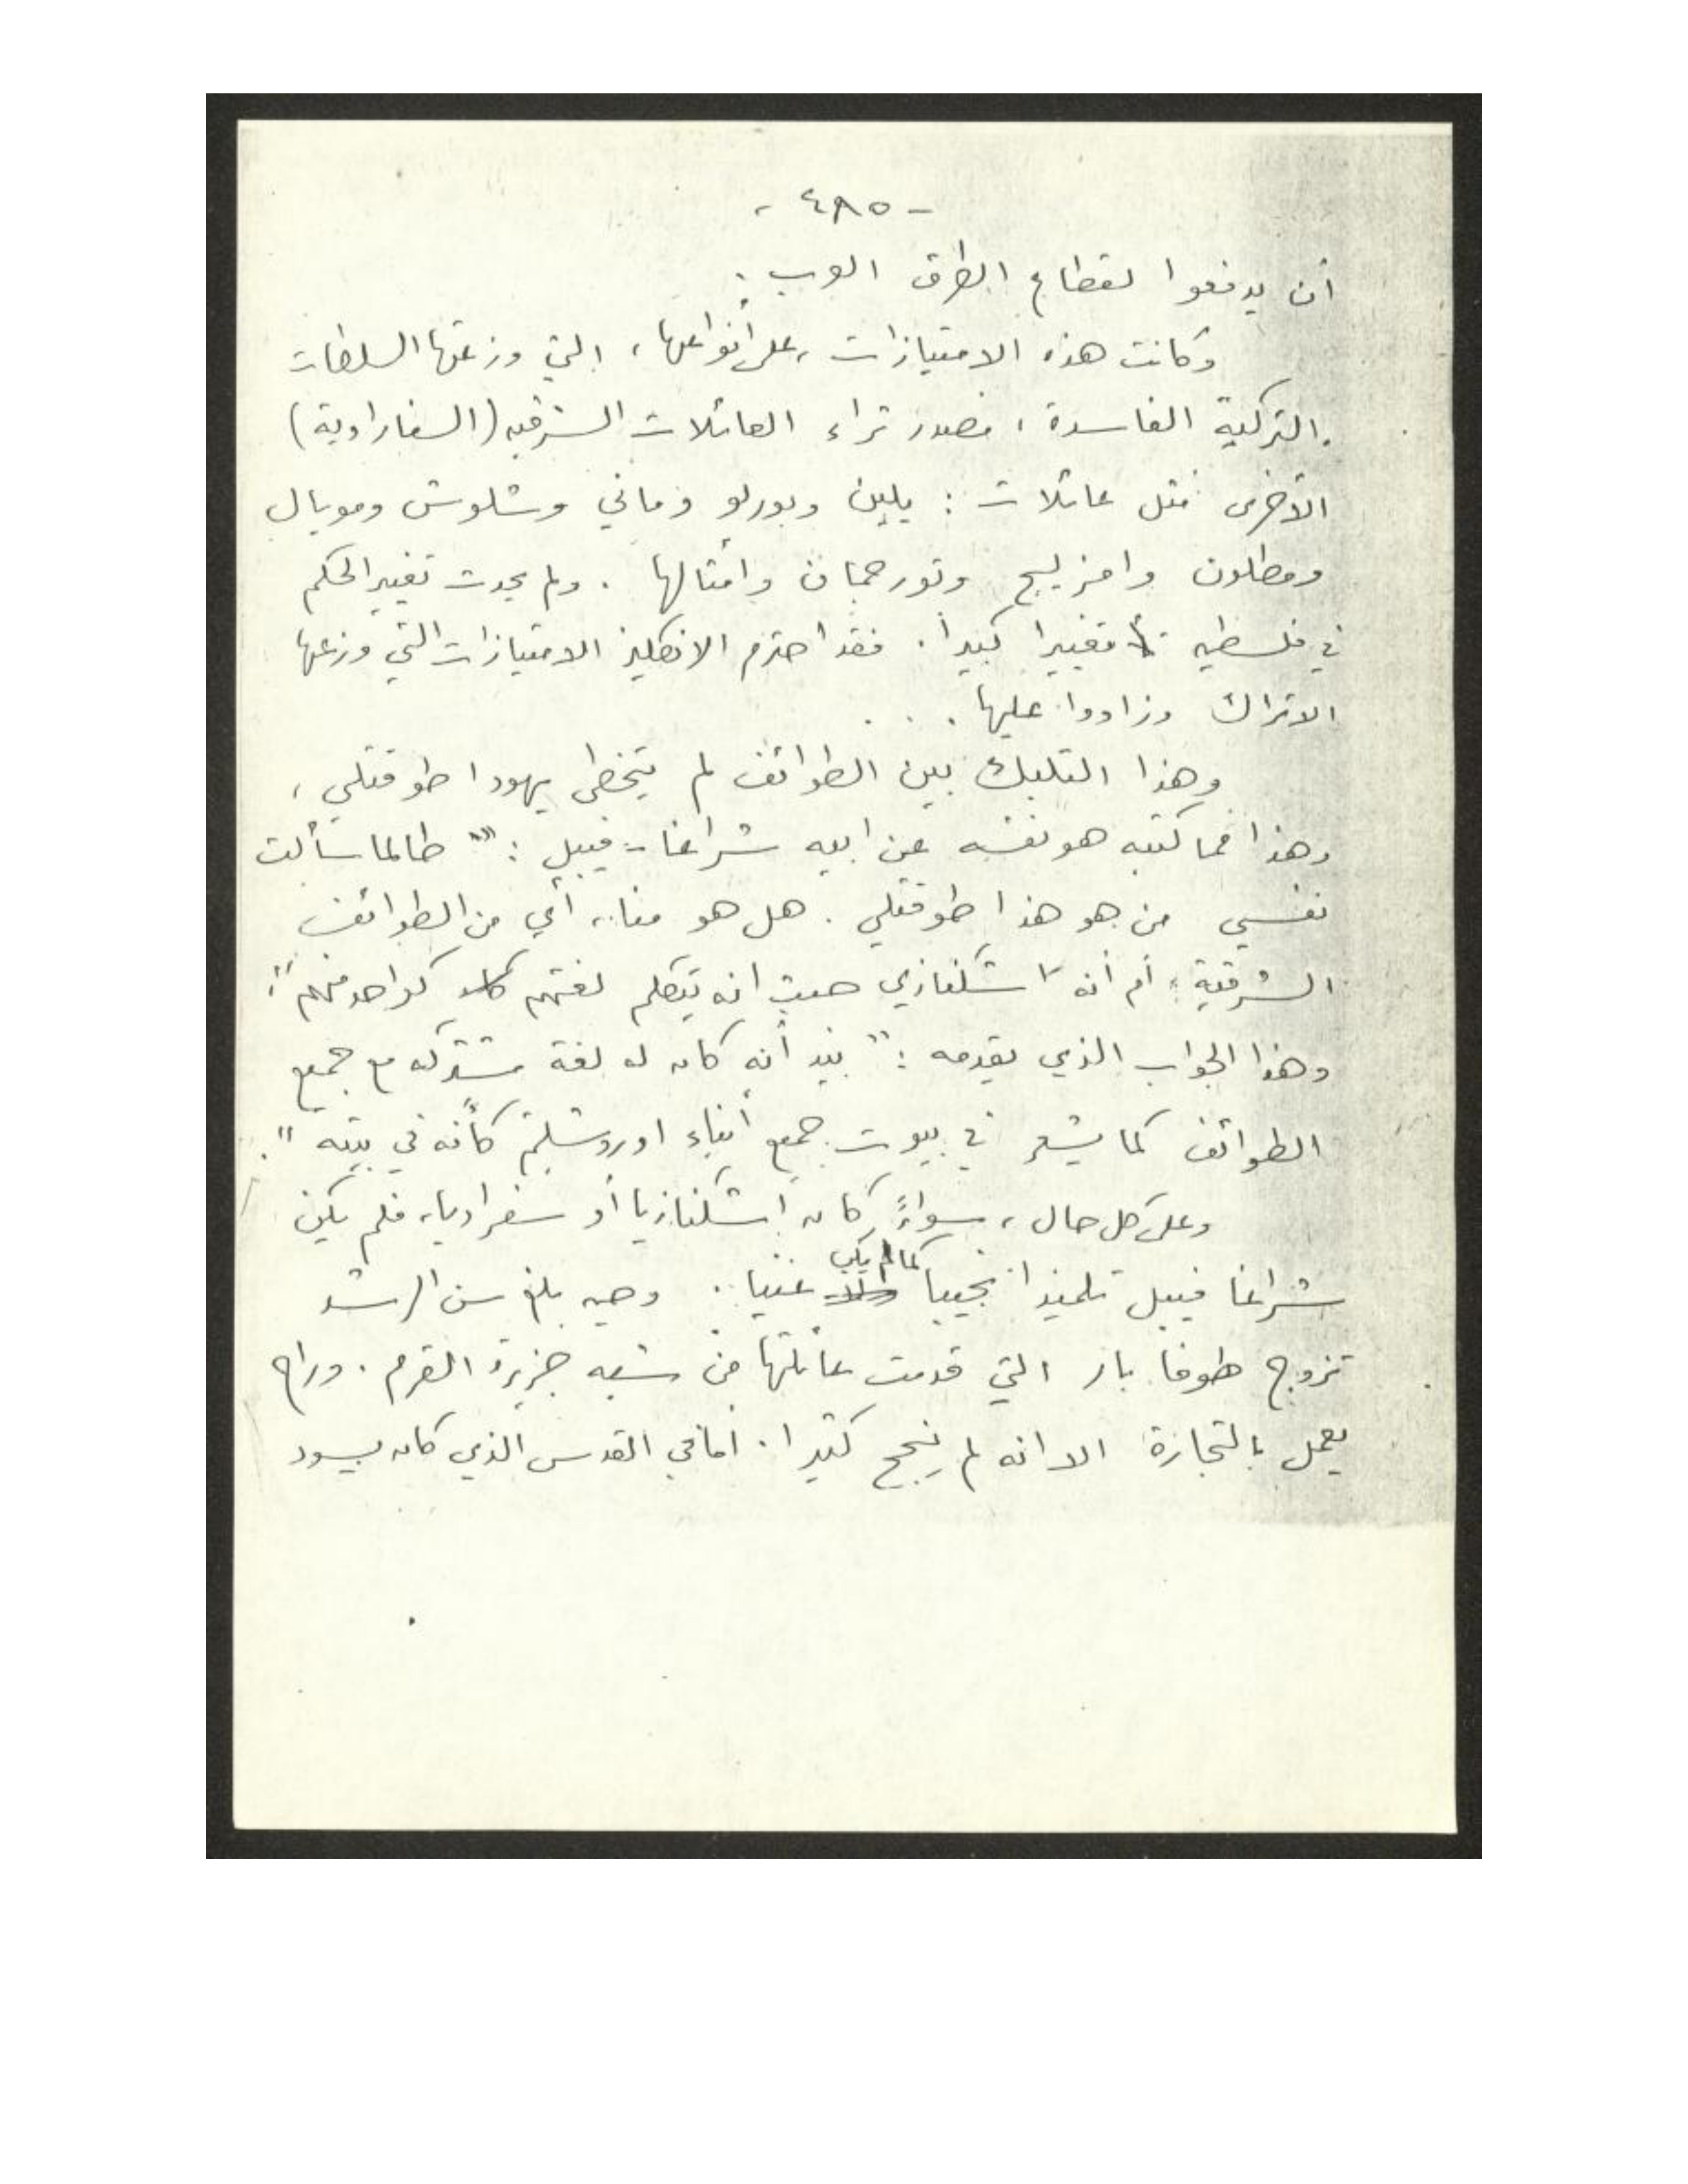 - ٤٨٥ -
أن يدفعوا لقطاع الطرق العرب .
وكانت هذه الامتيازات ، على أنواعها ، التي وزعتها السلطات
التركية الفاسدة ، مصدر ثراء العائلات الشرقيه (السفارادية)
الأخرى مثل عائلات : يلين وبورلو وماني وشلوش ومويال
ومطلون وامزليج وتورجمان وامثالها . ولم يحدث تغيير الحكم
في فلسطين تغييرا كبيرا . فقد احترم الانكليز الامتيازات التي وزعها
الاتراك وزادوا عليها . . .
وهذا التلبك بين الطوائف لم يتخطى يهودا طوقتلي ،
وهذا مما كتبه هو نفسه عن ابيه شراغا - فيبل : " طالما سألت
نفسي من هو هذا طوقتلي . هل هو منا ، أي من الطوائف
الشرقية ، أم أنه اشكنازي حيث انه يتكلم لغتهم كواحد منهم " ؛
وهذا الجواب الذي يقدمه : " بيد أنه كان له لغة مشتركه مع جميع
الطوائف كما يشعر في بيوت جميع أبناء اوروشليم كأنه في بيته " .
وعلى كل حال ، سواءً كان اشكنازيا أو سفراديا ، فلم يكن
شراغا فيبل تلميذا نجيبا كما لم يكن غنيا . وحين بلغ سن الرشد
تزوج طوفا بار التي قدمت عائلتها من شبه جزيرة القرم . وراح
يعمل بالتجارة الا انه لم ينجح كثيرا . أما في القدس الذي كان يسود